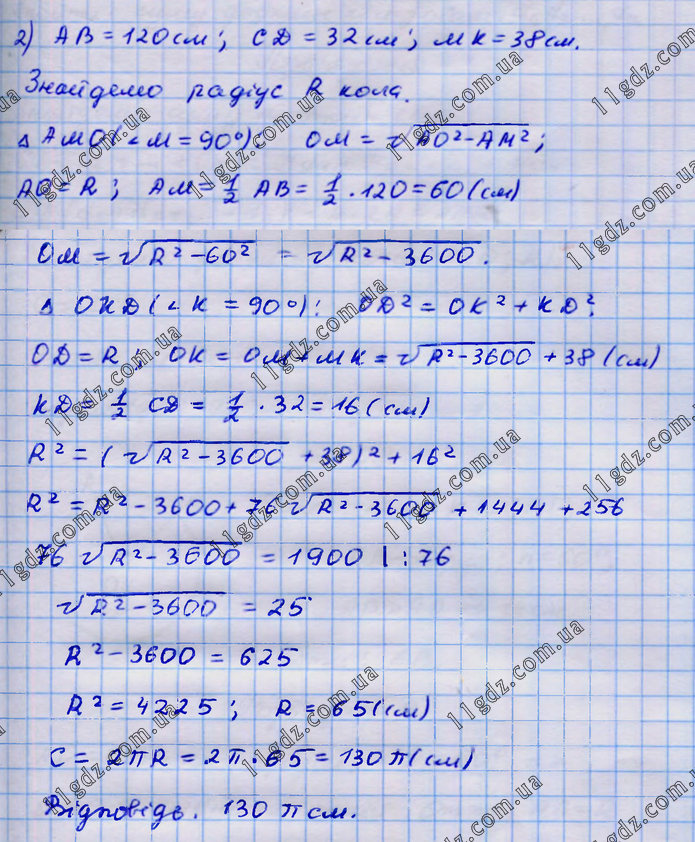 2) AB = 120 см; CD = 32 см; MK = 38 см.
Знайдемо радіус R кола.
△ AMO (∠M = 90°): OM = √(AO² - AM²);
AO = R; AM = 1/2 AB = 1/2 · 120 = 60 (см)
OM = √(R² - 60²) = √(R² - 3600).
△ OKD (∠K = 90°): OD² = OK² + KD²;
OD = R; OK = OM + MK = √(R² - 3600) + 38 (см)
KD = 1/2 CD = 1/2 · 32 = 16 (см)
R² = (√(R² - 3600) + 38)² + 16²
R² = R² - 3600 + 76 √(R² - 3600) + 1444 + 256
76 √(R² - 3600) = 1900 | : 76
√(R² - 3600) = 25
R² - 3600 = 625
R² = 4225; R = 65 (см)
C = 2πR = 2π · 65 = 130 π (см)
Відповідь. 130 π см.
11gdz.com.ua